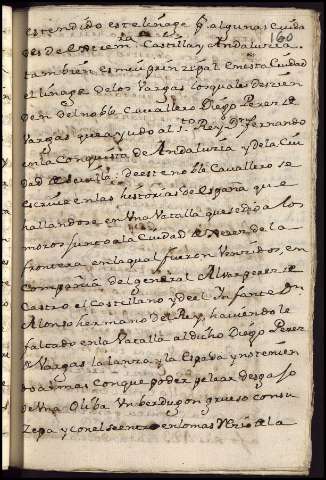 estendido este linage pr. algunas Ciuda
160
des de
Castilla y Andaluzia.
tambien es mui prinzipal en esta Ciudad
el linage de los Vargas los quales descien
den del noble Cavallero Diego Perez de
Vargas que ayudo al sto. Rey Dn. fernando
en la Conquista de Andaluzia y de la Ciu
dad de Sevilla: de este noble Cavallero se
escrive en las historias de España que
hallandose en Vna Vatalla que se dio a los
moros junto a la Ciudad de Xerez de la
frontera en la qual fueron Venzidos, en
Compañia del general Alvar perez de
Castro el Castellano y de el Infante Dn
Alonso hermano del Rey, haviendole
faltado en la Vatalla al dicho Diego Perez
de Vargas la lanza y la Espada y no tenien
do armas con que poder pelear desgajo
de Vna Oliba Un berdugon grueso con su
Zepa y con el se entro en lo mas